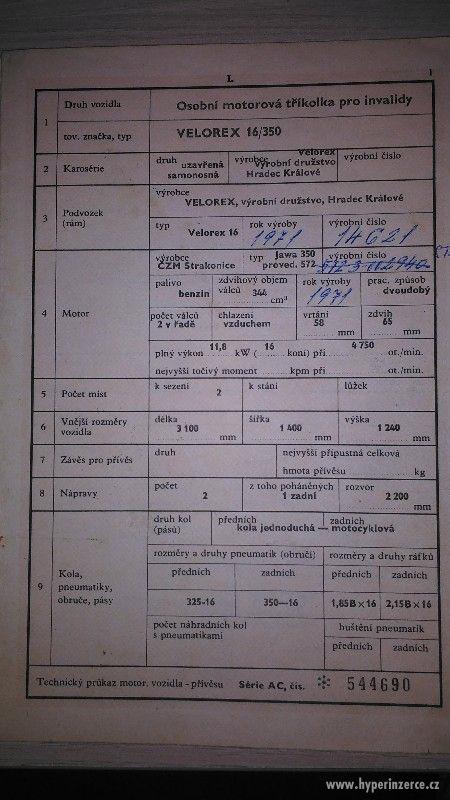 I.
1
1
Druh vozidla
Osobní motorová tříkolka pro invalidy
tov. značka, typ
VELOREX 16/350
2
Karosérie
druh uzavřená
samonosná
výrobce Velorex
výrobní družstvo
Hradec Králové
výrobní číslo
3
Podvozek
(rám)
výrobce
VELOREX, výrobní družstvo, Hradec Králové
typ
Velorex 16
rok výroby
1971
výrobní číslo
14621
4
Motor
výrobce
ČZM Strakonice
typ Jawa 350
proved. 572
výrobní číslo
palivo
benzin
zdvihový objem
válců 344 cm³
rok výroby
1971
prac. způsob
dvoudobý
počet válců
2 v řadě
chlazení
vzduchem
vrtání
58 mm
zdvih
65 mm
plný výkon 11,8 kW ( 16 koní) při 4 750 ot./min.
nejvyšší točivý moment kpm při ot./min.
5
Počet míst
k sezení
2
k stání
lůžek
6
Vnější rozměry
vozidla
délka
3 100 mm
šířka
1 400 mm
výška
1 240 mm
7
Závěs pro přívěs
druh
nejvyšší přípustná celková
hmota přívěsu kg
8
Nápravy
počet
2
z toho poháněných
1 zadní
rozvor
2 200 mm
9
Kola,
pneumatiky,
obruče, pásy
druh kol
(pásů)
předních
zadních
kola jednoduchá — motocyklová
rozměry a druhy pneumatik (obručí)
rozměry a druhy ráfků
předních
zadních
předních
zadních
325-16
350—16
1,85B×16
2,15B×16
počet náhradních kol
s pneumatikami
huštění pneumatik
předních
zadních
Technický průkaz motor. vozidla - přívěsu Série AC, čís. 544690
www.hyperinzerce.cz